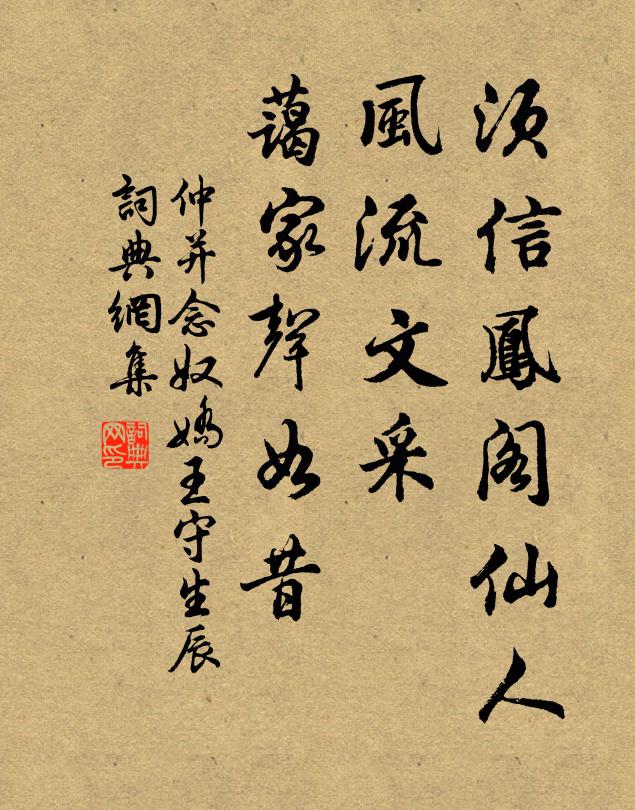 須信鳳閣仙人
風流文采
藹家聲如昔
仲并念奴嬌王守生辰
詞典網集
詞典
网印